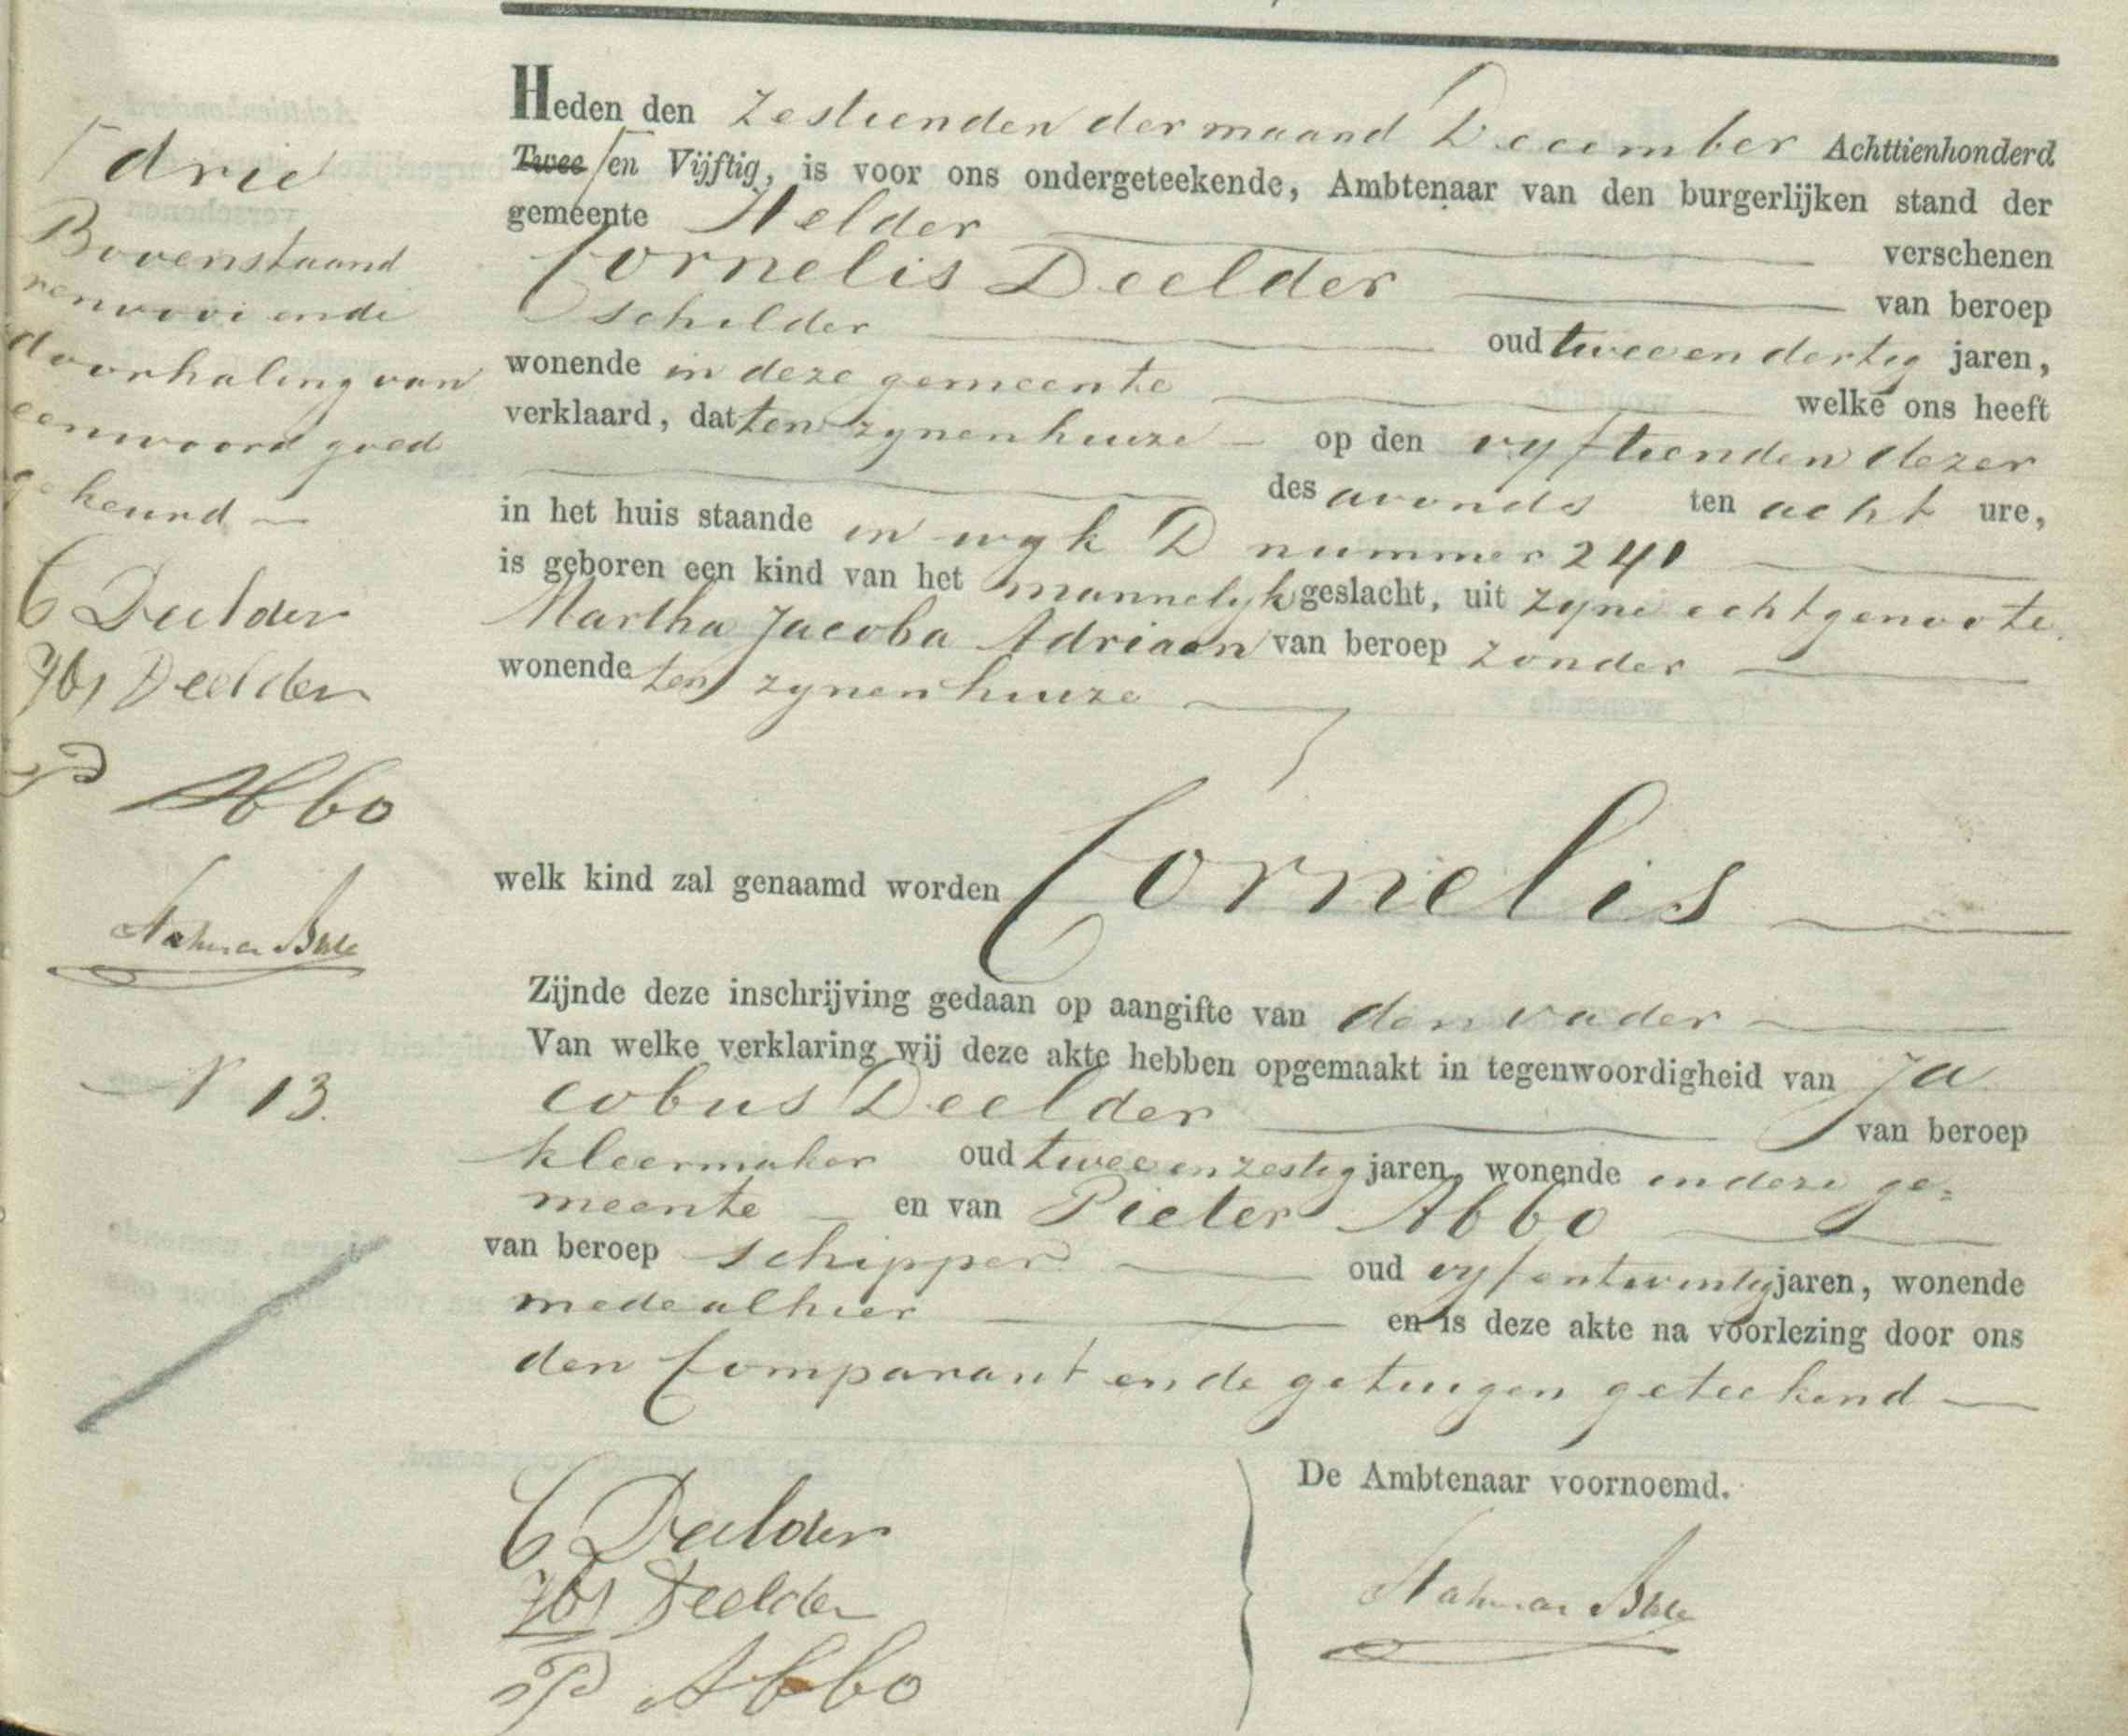 Heden den zestienden der maand December Achttienhonderd
Twee / en Vijftig, is voor ons ondergeteekende, Ambtenaar van den burgerlijken stand der
gemeente Helder verschenen
Cornelis Deelder van beroep
schilder oud twee en dertig jaren,
wonende in deze gemeente welke ons heeft
verklaard, dat ten zynen huize op den vyftienden dezer
des avonds ten acht ure,
in het huis staande in wyk D nummer 241
is geboren een kind van het mannelyk geslacht, uit zyne echtgenoote
Martha Jacoba Adriaan van beroep zonder
wonende ten zynen huize
welk kind zal genaamd worden Cornelis
Zijnde deze inschrijving gedaan op aangifte van den vader
Van welke verklaring wij deze akte hebben opgemaakt in tegenwoordigheid van Ja
cobus Deelder van beroep
kleermaker oud twee en zestig jaren, wonende in deze ge=
meente en van Pieter Abbo
van beroep schipper oud vyf en twintig jaren, wonende
mede alhier en is deze akte na voorlezing door ons
den Comparant en de getuigen geteekend
De Ambtenaar voornoemd.
C Deelder
Jbs Deelder
P Abbo
drie
Bovenstaand
renvooi en de
doorhaling van
een woord goed
gekeurd
C Deelder
Jbs Deelder
P Abbo
N 13.